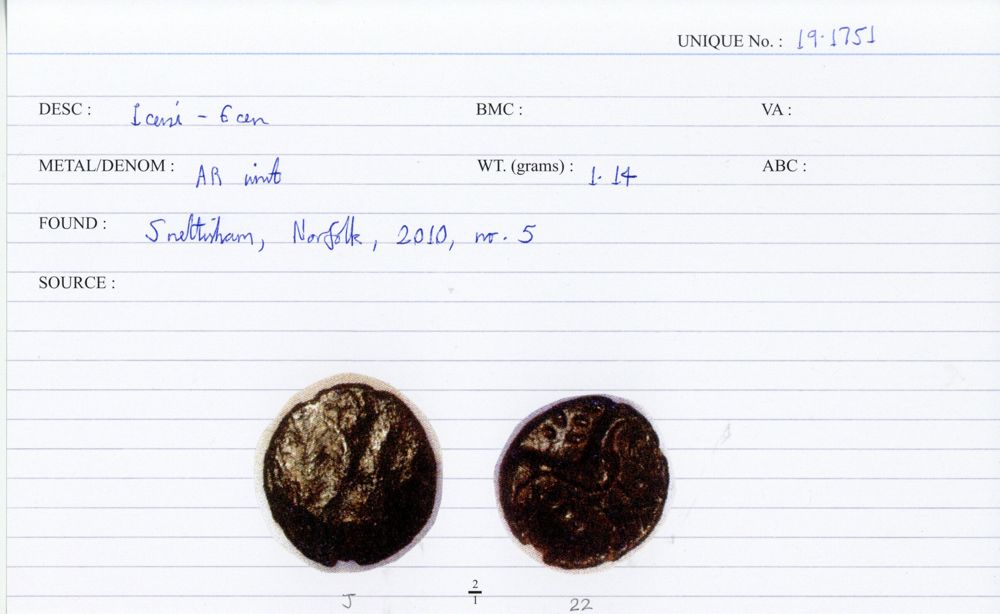 UNIQUE No. : 19.1751
DESC : Iceni - Ecen BMC : VA :
METAL/DENOM : AR unit WT. (grams) : 1.14 ABC :
FOUND : Snettisham, Norfolk, 2010, no. 5
SOURCE :
2/1
J 22